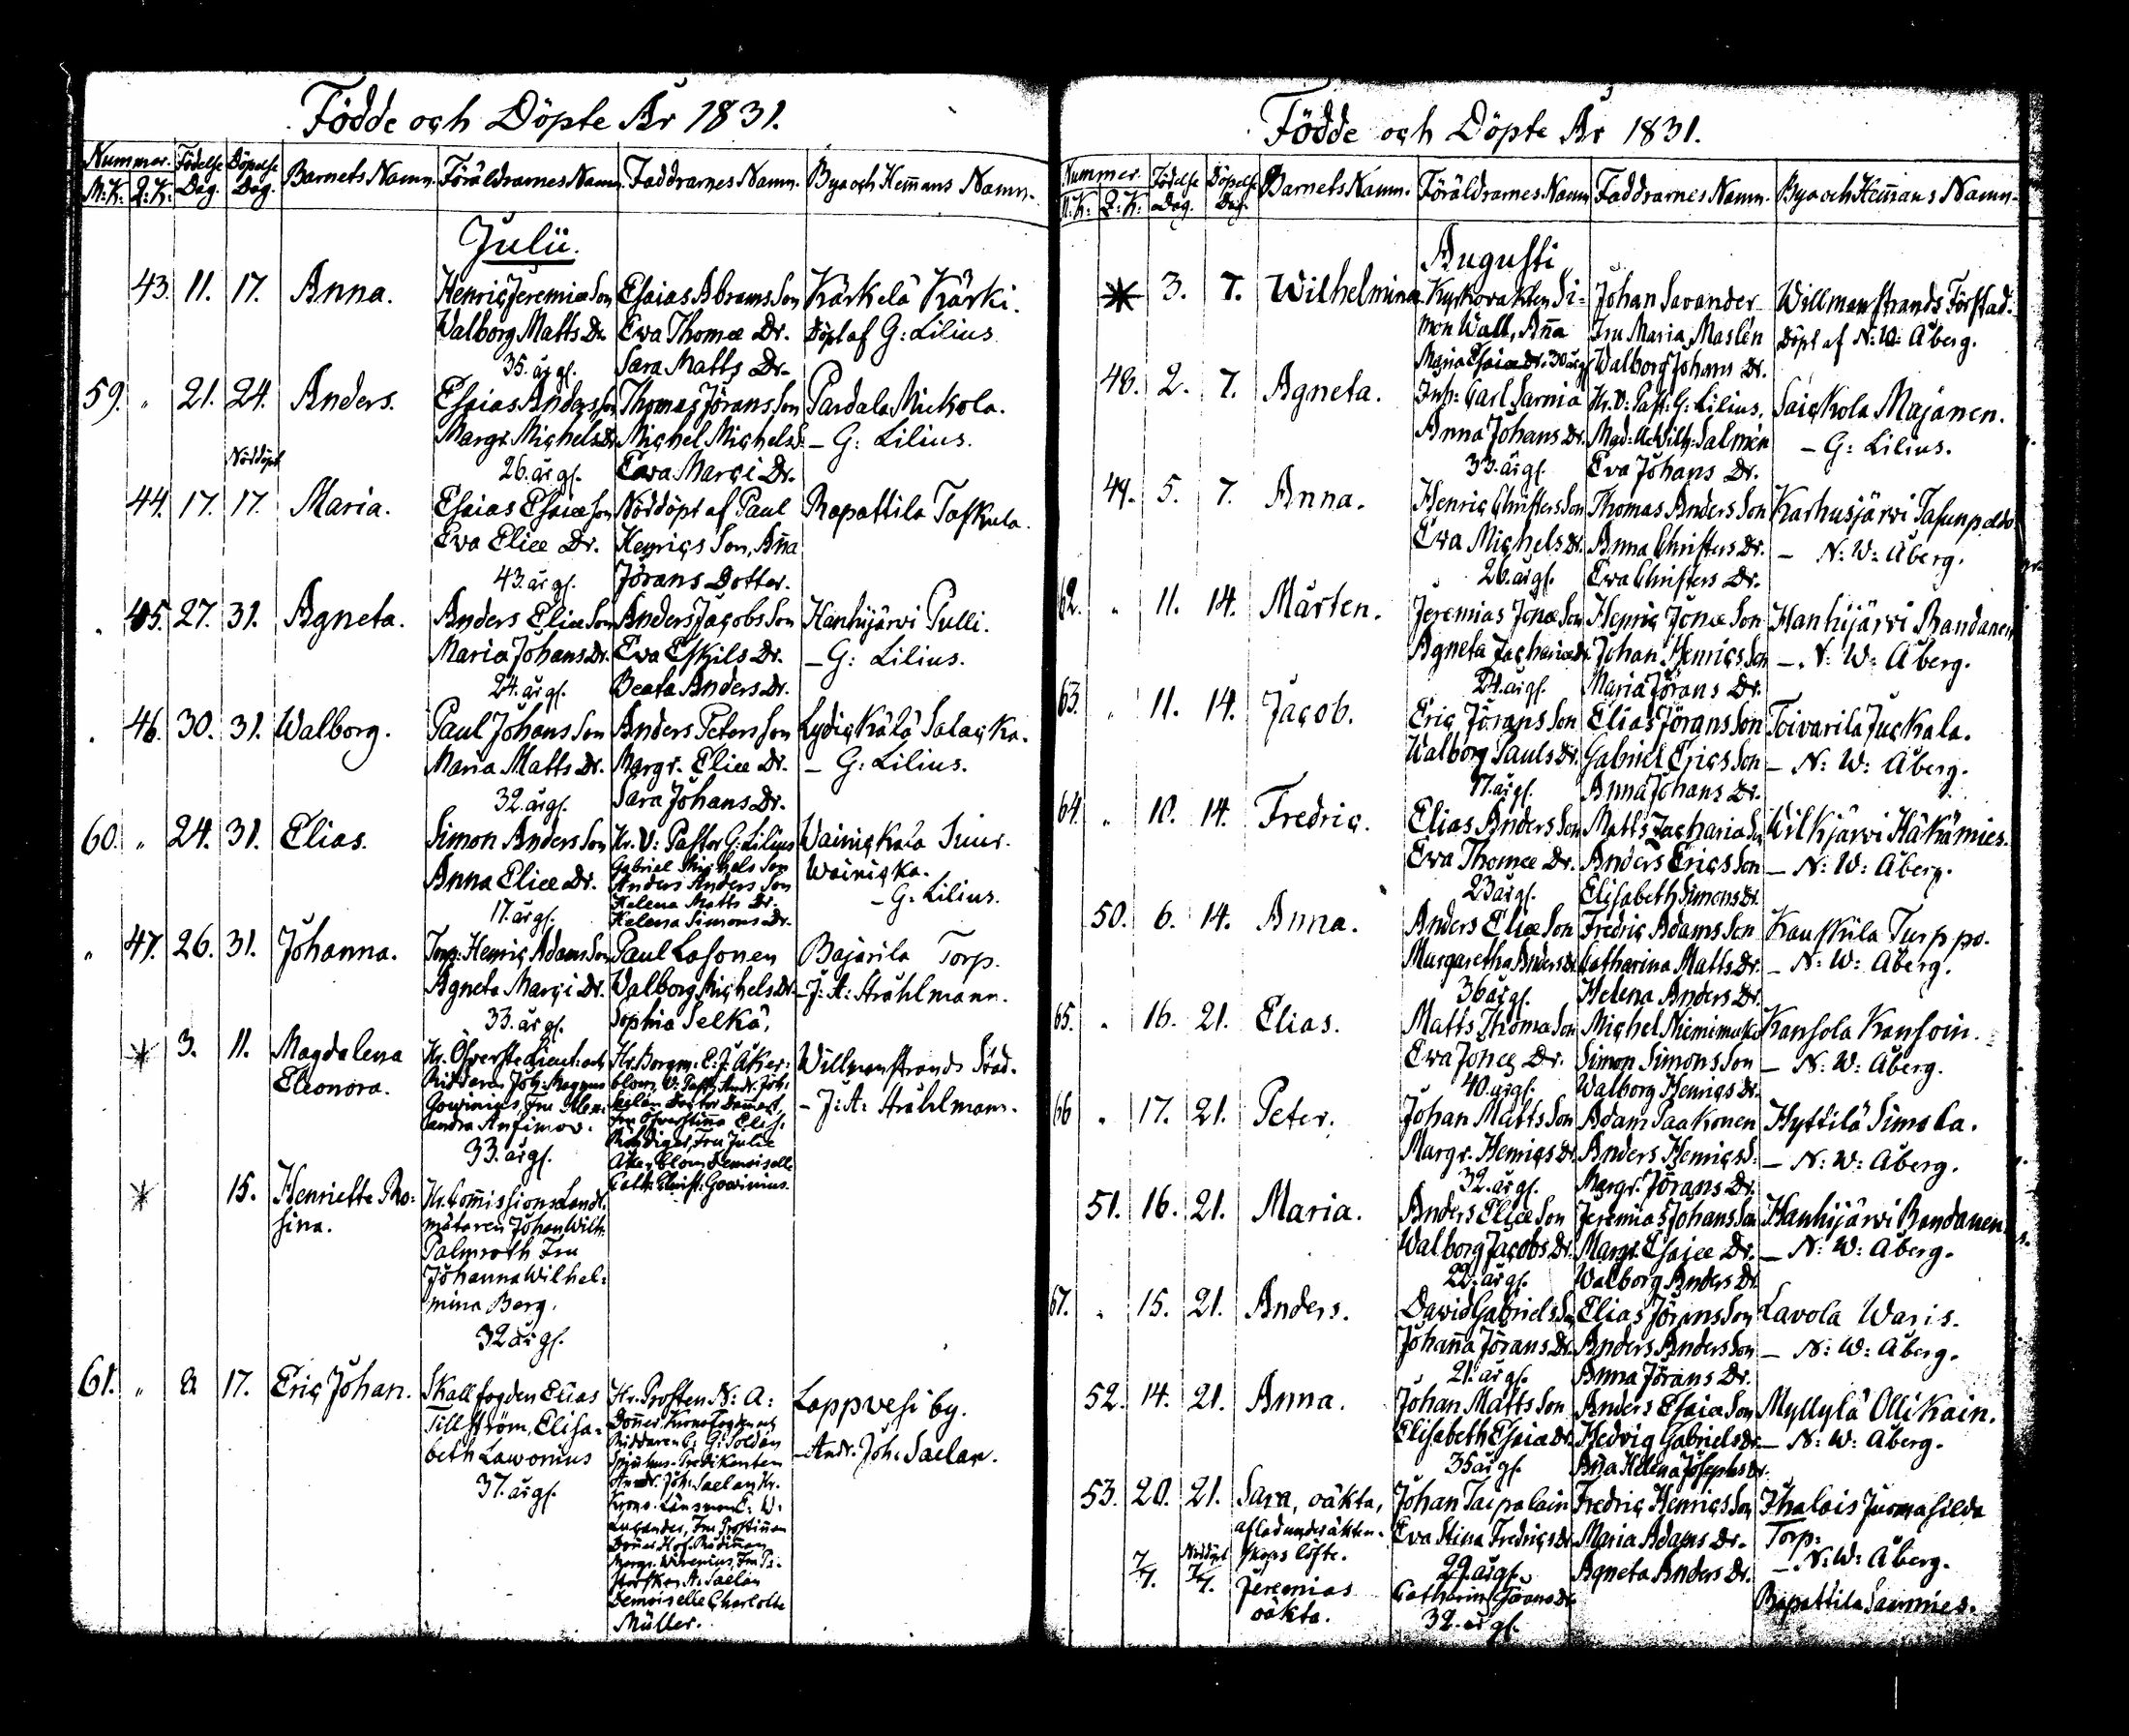 Födde och Döpte År 1831.
Nummer. Födelse Dag. Döpelse Dag. Barnets Namn. Föräldrarnes Namn. Faddrarnes Namn. Bya och Hem̄ans Namn.
M:K: Q:K:
Julii.
43. 11. 17. Anna. Henric Jeremiæ Son Esaias Abrams Son Kärkelä Kärki.
Walborg Matts Dr. Eva Thomæ Dr. Döpt af G: Lilius
35. år gl. Sara Matts Dr.
59. " 21. 24. Anders. Esaias Anders Son Thomas Jörans Son Pardala Mickola.
Margr. Michels Dr. Michel Michels S: – G: Lilius.
26. år gl. Ewa Marci Dr.
Nöddöpt
44. 17. 17. Maria. Esaias Esaiæ Son Nöddöpt af Paul Rapattila Taskula.
Eva Eliæ Dr. Henrics Son, Ana
43. år gl. Jörans Dotter.
45. 27. 31. Agneta. Anders Eliæ Son Anders Jacobs Son Hanhijärvi Pulli.
Maria Johans Dr. Eva Eskils Dr. – G: Lilius.
24. år gl. Beata Anders Dr.
46. 30. 31. Walborg. Paul Johans Son Anders Peters Son Lydickälä Salacka.
Maria Matts Dr. Margr. Eliæ Dr. – G: Lilius.
32. år gl. Sara Johans Dr.
60. " 24. 31. Elias. Simon Anders Son Hr. V: Pastor G: Lilius Wainickala Suur.
Anna Eliæ Dr. Gabriel Michels Son Wainicka.
Anders Anders Son – G: Lilius.
17. år gl. Helena Matts Dr.
Helena Simons Dr.
" 47. 26. 31. Johanna. Torp: Henric Adams Son Paul Lasonen Bajarila Torp.
Agneta Marci Dr. Walborg Michels Dr. – J: A: Stråhlmann.
33. år gl. Sophia Selkä.
3. 11. Magdalena Hr. Öfverste Lieut: och Hr. Borgm: E: J: Åker: Willmanstrands Stad.
Eleonora. Riddaren Joh: Magnus blom, V: Past: Andr. Joh: – J: A: Stråhlmann.
Gowinius, Fru Alex:
andra Anfimov.
33. år gl. Rüdiger, Fru Julie
Åkerblom Demoiselle
Cath: Christ: Gowinius.
15. Henriette Ro: Hr. Com̄issions Landt.
sina. mätaren Johan Wilh:
Palmroth Fru
Johanna Wilhel:
mina Berg.
32 år gl.
61. " 8. 17. Eric Johan. Skallfogden Elias Hr. Prosten N: A: Lappvesi by.
Tillström, Elisa- Donner, Kronofogden och – Andr. Joh: Saelan.
beth Lawonius Riddaren C: G: Soldan
37. år gl. Spinhus-Predikanten
Andr. Joh: Saelan Hr.
Krono-Länsman E: W:
Lucander, Fru Prostin̄an
Don̄er, Hof-Rådin̄an
Margr. Wirenius, Fru Pa-
storskan A: Saelan
Demoiselle Charlotte
Müller.
Födde och Döpte År 1831.
Nummer. Födelse Dag. Döpelse Dag. Barnets Namn. Föräldrarnes Namn Faddrarnes Namn. Bya och Hem̄ans Namn.
M:K: Q:K:
Augusti
3. 7. Wilhelmina. Kyrkovakten Si- Johan Savander Willmanstrands Förstad.
mon Wall, Ana Fru Maria Maslén Döpt af N: W: Åberg.
Maria Esaiæ Dr. 30 år gl Walborg Johans Dr.
48. 2. 7. Agneta. Inh: Carl Sarnia Hr. V: Past: G: Lilius, Saickola Majanen.
Anna Johans Dr. Mad: U: Wilh: Salmén – G: Lilius.
33. år gl. Eva Johans Dr.
49. 5. 7. Anna. Henric Christers Son Thomas Anders Son Karhusjärvi Tasunpolvi
Eva Michels Dr. Anna Christers Dr. – N: W: Åberg.
26. år gl. Ewa Christers Dr.
62. " 11. 14. Mårten. Jeremias Jonæ Son Henric Jonæ Son Hanhijärvi Randanen
Agneta Zachariæ Dr. Johan Henrics Son – N: W: Åberg.
24. år gl. Maria Jörans Dr.
63. " 11. 14. Jacob. Eric Jörans Son Elias Jörans Son Toivarila Juckala.
Walborg Pauls Dr. Gabriel Erics Son – N: W: Åberg.
år gl. Anna Johans Dr.
64. " 10. 14. Fredric. Elias Anders Son Matts Zachariæ Son Wilkjärvi Häkämies.
Ewa Thomæ Dr. Anders Erics Son – N: W: Åberg.
23 år gl. Elisabeth Simons Dr.
50. 6. 14. Anna. Anders Eliæ Son Fredric Adams Son Kauskiila Turppo.
Margaretha Anders Dr. Catharina Matts Dr. – N: W: Åberg.
36 år gl. Helena Anders Dr.
65. " 16. 21. Elias. Matts Thomæ Son Michel Niemimaka Kansola Kansoin.
Eva Jonæ Dr. Simon Simons Son – N: W: Åberg.
40. år gl. Walborg Henrics Dr.
66 " 17. 21. Peter. Johan Matts Son Adam Paakonen Hyttilä Simola.
Margr. Henrics Dr. Anders Henrics S: – N: W: Åberg.
32. år gl. Margr. Jörans Dr.
51. 16. 21. Maria. Anders Eliæ Son Jeremias Johans Son Hanhijärvi Randanen.
Walborg Jacobs Dr. Margr. Esaiæ Dr. – N: W: Åberg.
22. år gl. Walborg Anders Dr.
67. " 15. 21. Anders. David Gabriels Son Elias Jörans Son Lavola Waris.
Johan̄a Jörans Dr. Anders Anders Son – N: W: Åberg.
21. år gl. Anna Jörans Dr.
52. 14. 21. Anna. Johan Matts Son Anders Esaiæ Son Myllylä Ollikain.
Elisabeth Esaiæ Dr. Hedvig Gabriels Dr. – N: W: Åberg.
35 år gl. Ana Helena Josephs Dr.
53. 20. 21. Sara, oäkta, Johan Taipalain Fredric Henrics Son Ihalais Juomasilda
aflad under äkten- Eva Stina Fredrics Dr. Maria Adams Dr. Torp:
skaps löfte. 29. år gl. Agneta Anders Dr. – N: W: Åberg.
7/7. Nöddöpt 7/7. Jeremias Catharina Jörans Dr. Rapattila Sammies.
oäkta. 32. år gl.